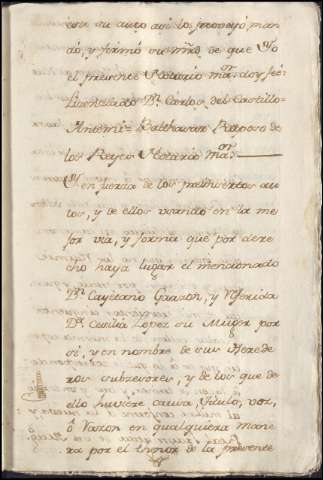 este su auto asi lo proveyó man
dó, y firmó su mrd de que Yo
el presente Notario maor doy feé
Licenciado Dn Carlos del Castillo=
Antemi= Balthasar Raposo de
los Reyes Notario maor
Y en fuerza de los preinsertos au
tos, y de ellos usando en la me
jor via, y forma que por dere
cho haya lugar el mencionado
Dn Cayetano Garzon, y Referida
Da Cecilia Lopez su Muger por
si, y en nombre de sus Herede
ros subcesores, y de los que de
ello huviere causa, titulo, voz,
ô Razon en qualquiera mane
ra por el thenor de la presente